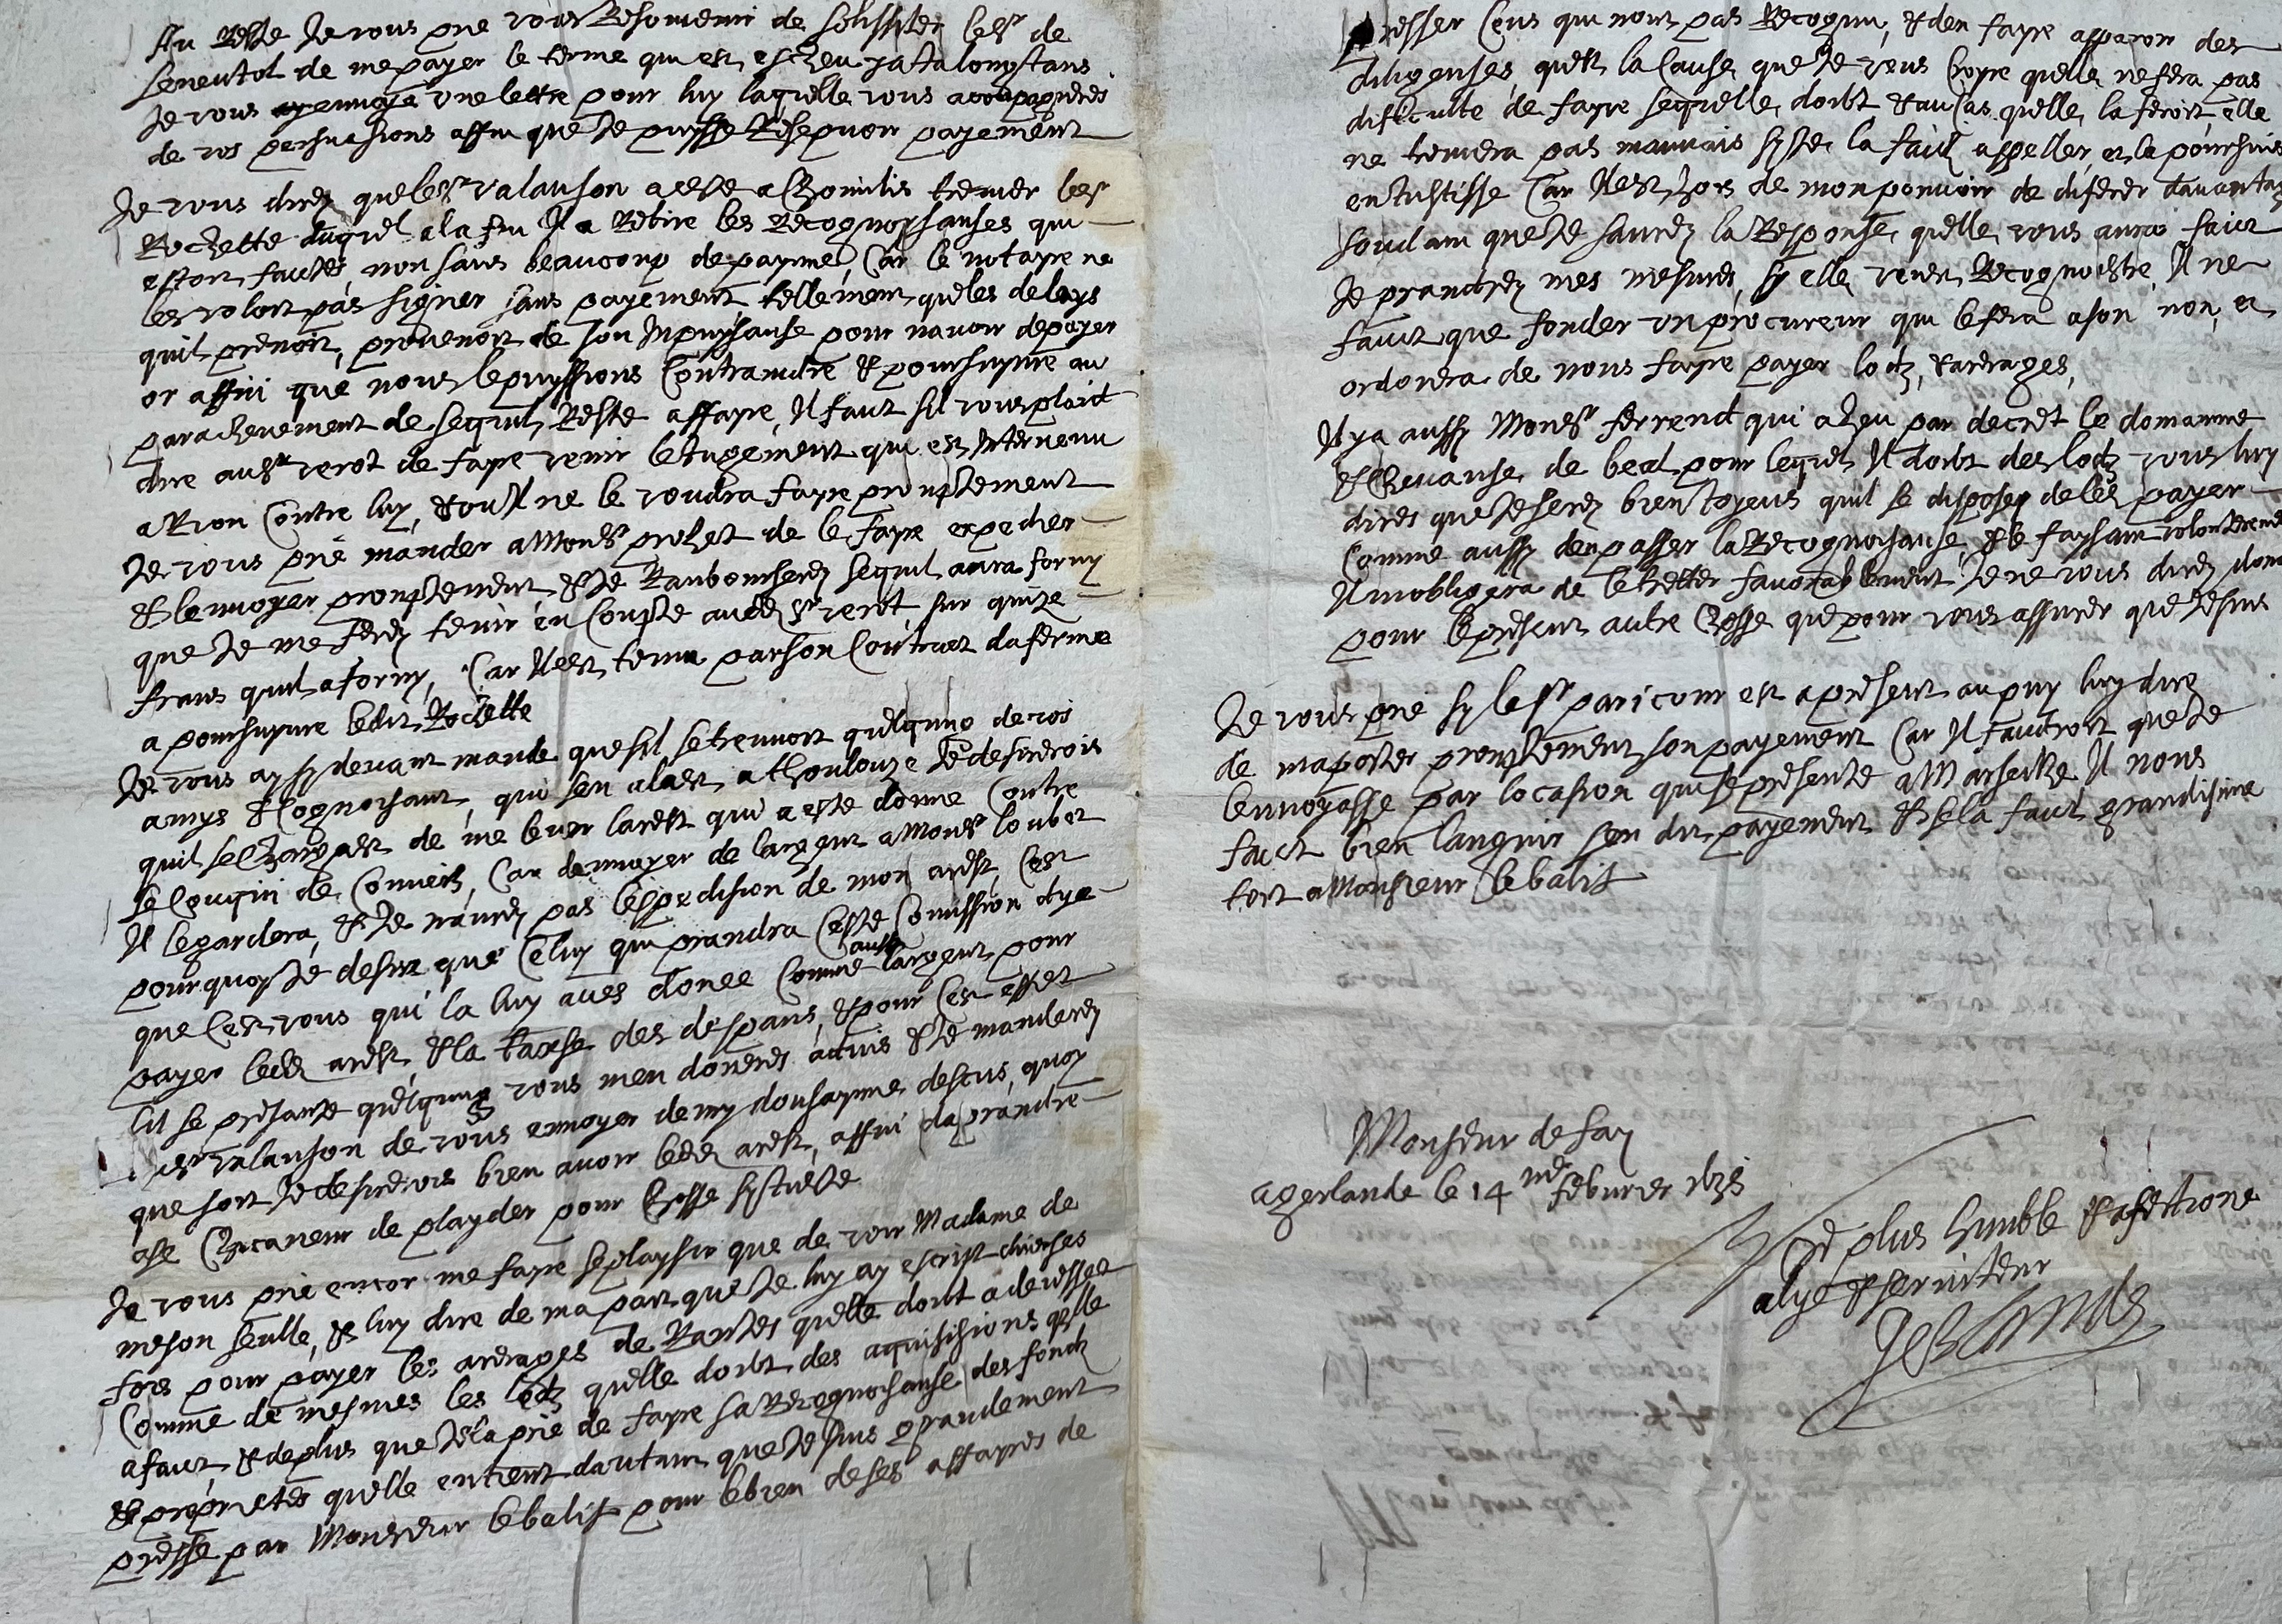 Au Reste Je vous prie vous Resouvenir de solissiter le sr de
seneutol de me payer le terme qui est escheu ja ta longstans
Je vous envoye une lettre pour luy laquelle vous acompagneres
de vos persuasions affin que Je puysse Resepvoir payement
Je vous direy que le sr valanson a este a Chomilis trever le sr
Rochette duquel a la fin Il a Retire les Recognoysanses qui
estoit faictes non sans beaucoup de payne Car le notayre ne
les voloit pas signer sans payement tellement que les delays
quil prenoit, provenoit de son Inpuysanse pour navoir de payer
or affin que nous le puyssions Contraindre & poursuyvre au
parachevement de se quil Reste affayre, Il faut sil vous plaict
dire au sr verot de fayre venir le Jugement qui est Intervenu
a Rion Contre luy, & ou Il ne le voudra fayre promptement
Je vous prie mander a Monsr prohet de le fayre expedier
& lenvoyer promptement & Je Ranbourserey se quil aura forny
que Je me ferey tenir en Compte audt sr verot, sur quize
frans quil a forny, Car Il est tenu par son Contract daferme
a poursuyvre ledit Rochette
Je vous ay sy devant mande que sil se treuvoit quelquno de vos
amys & Cognoysant, qui sen alast a Thoulouze Je desirerois
quil se Chargeast de me lever larest qui a este donne Contre
le Cougin de Conueis, Car denvoyer de largent a Monsr loubet
Il le gardera, & Je naurey pas lexpedision de mon arest, Cest
pourquoy Je desire que Celuy qui prandra Ceste Comission dye
que Cest vous qui la luy aves donee Comme aussy largent pour
payer ledt arest & la taxse des despans, & pour Cest effet
sil se presante quelqung vous men doneres advis & Je manderey
au sr valanson de vous envoyer demy dousayne descus, quoy
que soit Je desirerois bien avoir ledt arest, affin daprandre
ase Chicaneur de playder pour Chosse sy Juste
Je vous prie encor me fayre se playsir que de voir Madame de
meson seulle, & luy dire de ma part que Je luy ay escript diverses
fois pour payer les arerages de Rantes quelle doibt a deversse
Comme de mesmes les lodz quelle doibt des aquisisions qelle
a faict & deplus que Je la prie de fayre sa Recognoisanse des fondz
& proprietes quelle en tient dautant que Je suis grandement
presse par Monsieur le balif pour le bien de ses affayres de
presser Ceus qui nont pas Recognu, & den fayre aparoir des
diligenses quest la Cause que Je veus Croyre quelle ne fera pas
dificulte de fayre se quelle doibt & au Cas quelle la feroit elle
ne treuvera pas mauvais sy Je la faictz appeller et la poursuis
en Justisse Car Il est hors de mon pouvoir de diferer davantage
soudain que Je saurey la Response quelle vous aura faict
Je prandrey mes mesures, sy elle veut Recognoistre Il ne
faict que fonder un procureur qui le fera a son non, et
ordonera de nous fayre payer lodz, & arerages,
Il y a aussy Monsr ferrend qui a heu par decret le domaine
& Chevanse de beal pour lequel Il doibt des lodz vous luy
dires que Je serey bien Joyeus quil se dispose de les payer
Comme aussy den passer la Recognoisanse, & le faysant volonterement
Il mobligera de le treter favorablement Je ne vous direy donc
pour le present autre Chosse que pour vous assurer que Je suis
Je vous prie sy le sr paricour est a present au puy luy dire
de maporter promptement son payement Car Il faudroit que Je
lenvoyasse par locasion qui se presente a Marseille Il nous
faict bien languir son dit payement & sela faict grandisime
tort a Monsieur le balif
Monsieur de fay
a gerlande le 14 me feburier
Vre plus humble & afetione
alye & serviteur
Gerlande